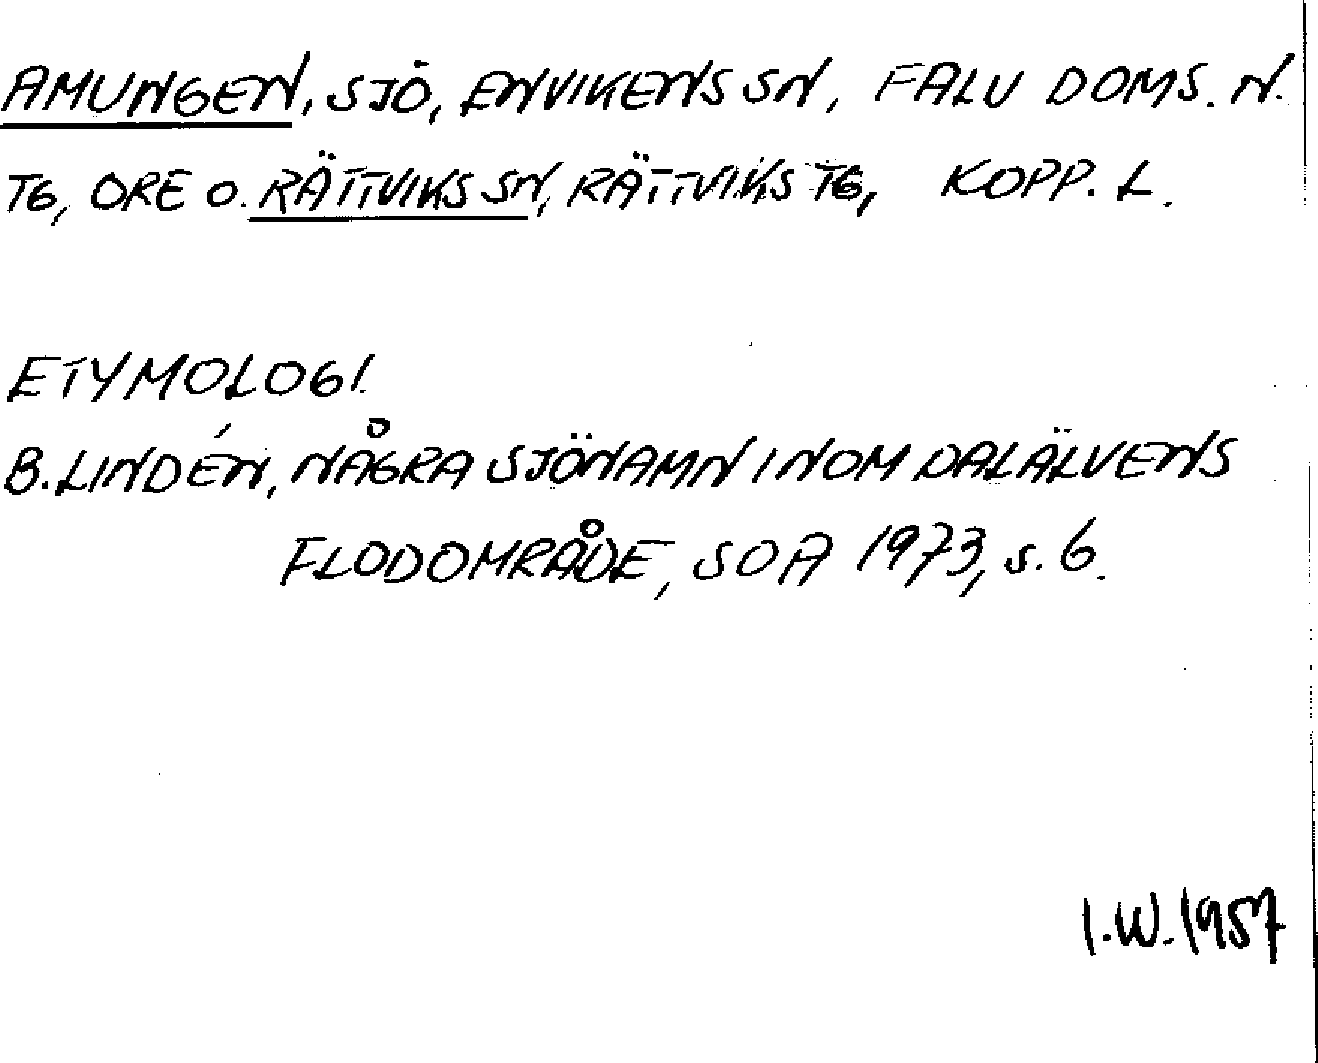 AMUNGEN, SJÖ, ENVIKENS SN, FALU DOMS. N.
TG, ORE O. RÄTTVIKS SN, RÄTTVIKS TG, KOPP. L.
ETYMOLOGI.
B. LINDÉN, NÅGRA SJÖNAMN INOM DALÄLVENS
FLODOMRÅDE, SOÅ 1973, s. 6.
I.W. 1957